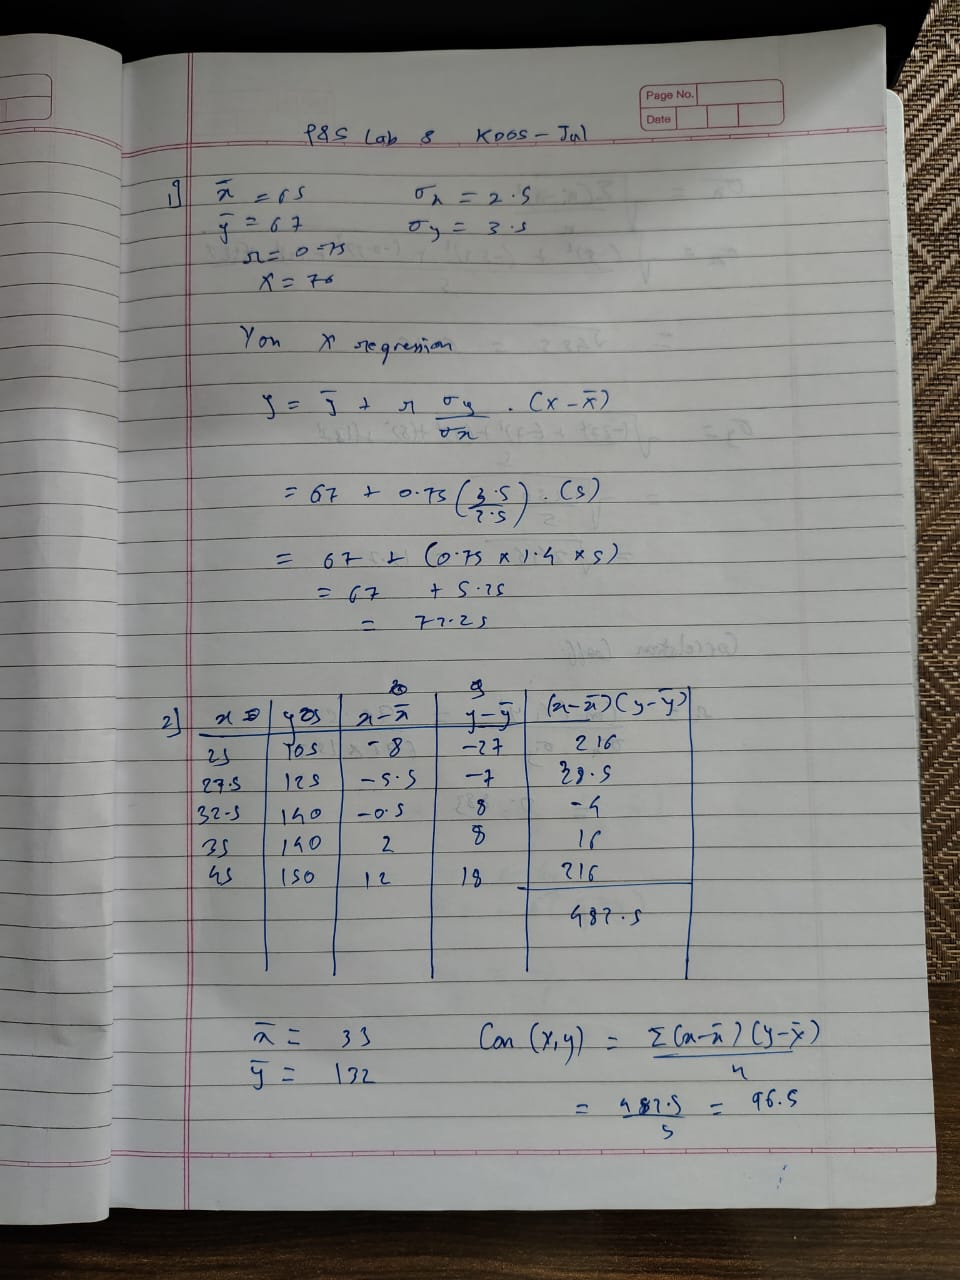 Page No.
Date
P&S Lab 8 K005 - Jul
1] x̄ = 65 σx = 2.5
ȳ = 67 σy = 3.5
r = 0.75
X = 70
Y on X regression
y = ȳ + r σy/σx . (x - x̄)
= 67 + 0.75 (3.5/2.5) . (5)
= 67 + (0.75 x 1.4 x 5)
= 67 + 5.25
= 72.25
2] x y x-x̄ y-ȳ (x-x̄)(y-ȳ)
25 105 -8 -27 216
27.5 125 -5.5 -7 38.5
32.5 140 -0.5 8 -4
35 140 2 8 16
45 150 12 18 216
482.5
x̄ = 33 Cov (x,y) = Σ(x-x̄)(y-ȳ)/n
ȳ = 132
= 482.5/5 = 96.5